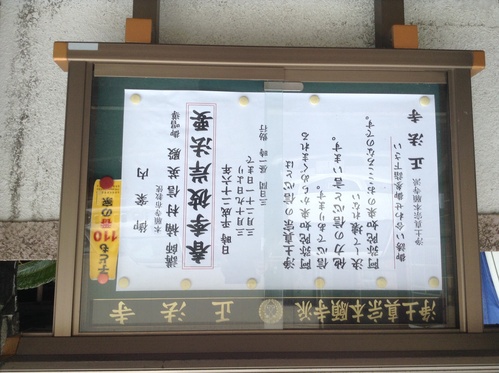 浄土真宗本願寺派 正法寺
御案内
本願寺布教使
講師 楠村信英殿 御唱導
春季彼岸法要
日時 平成二十六年
三月十九日より
三月二十一日まで
三日間 昼一時 勤行
浄土真宗の信心とは
阿弥陀如来からめぐまれる
信心であります。
他力の信心と言います。
決して壊れない
阿弥陀如来のおこころなのです。
御誘い合わせ御参詣下さい
浄土真宗本願寺派 正法寺
子ども110番の家